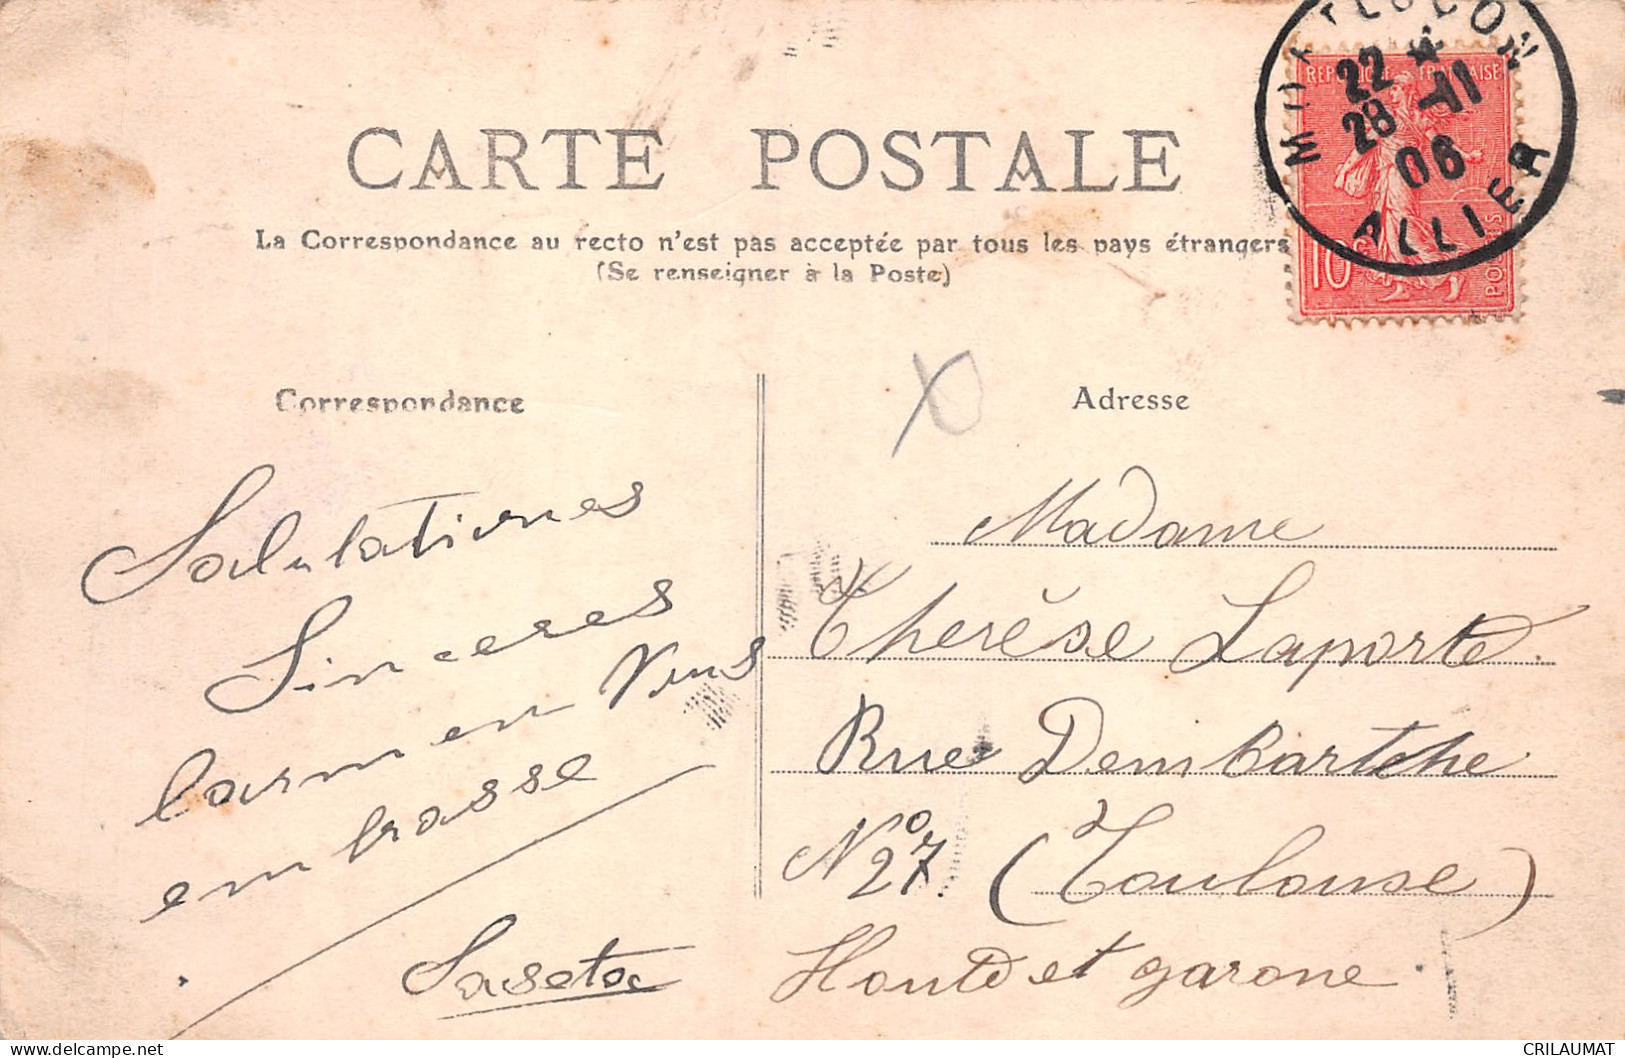 CARTE POSTALE
La Correspondance au recto n'est pas acceptée par tous les pays étrangers
(Se renseigner à la Poste)
MONTLUÇON
22 *
28 -11
06
ALLIER
REPUBLIQUE FRANÇAISE
10c
POSTES
Correspondance
Salutationes
Sinceres
Carmen Vous
embrasse
Saseta
Adresse
Madame
Therèse Laporte
Rue Dembartche
No 27. (Toulouse)
Houte et garone
CRILAUMAT
delcampe.net